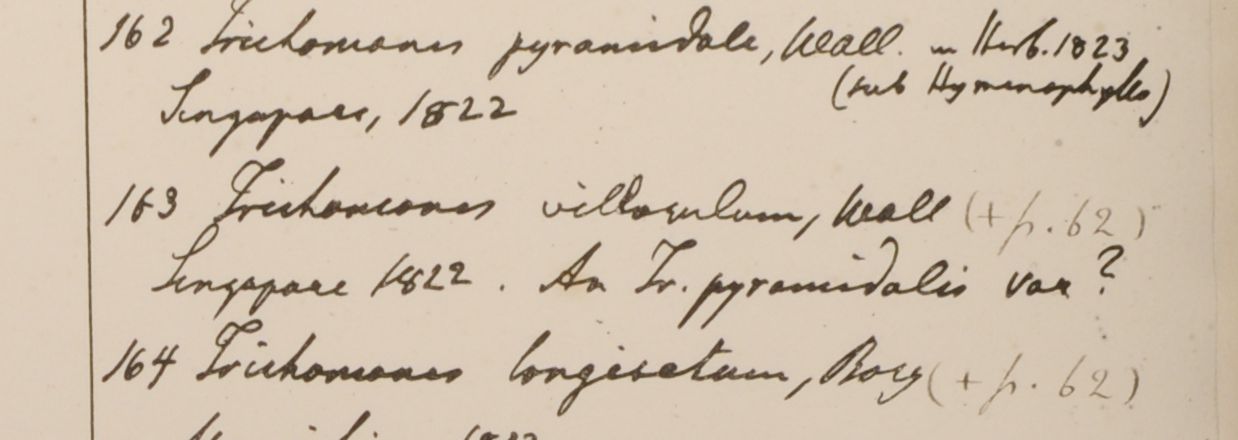 162 Trichomanes pyramidale, Wall. in Herb. 1823
(sub Hymenophyllo)
Singapore, 1822
163 Trichomanes villosulum, Wall (+ p. 62)
Singapore 1822. An Tr. pyramidalis var?
164 Trichomanes longisetum, Bory (+ p. 62)